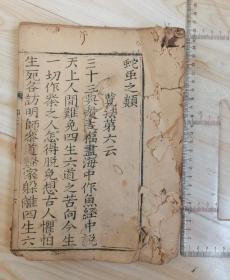 蛇虫之類
第六云
三十三福盡海中作魚經中說
天上人間難免四生六道之苦向今生
一切作業之人怎得脫免想古人懼怕
生死各訪明師參道歸家躲離四生六